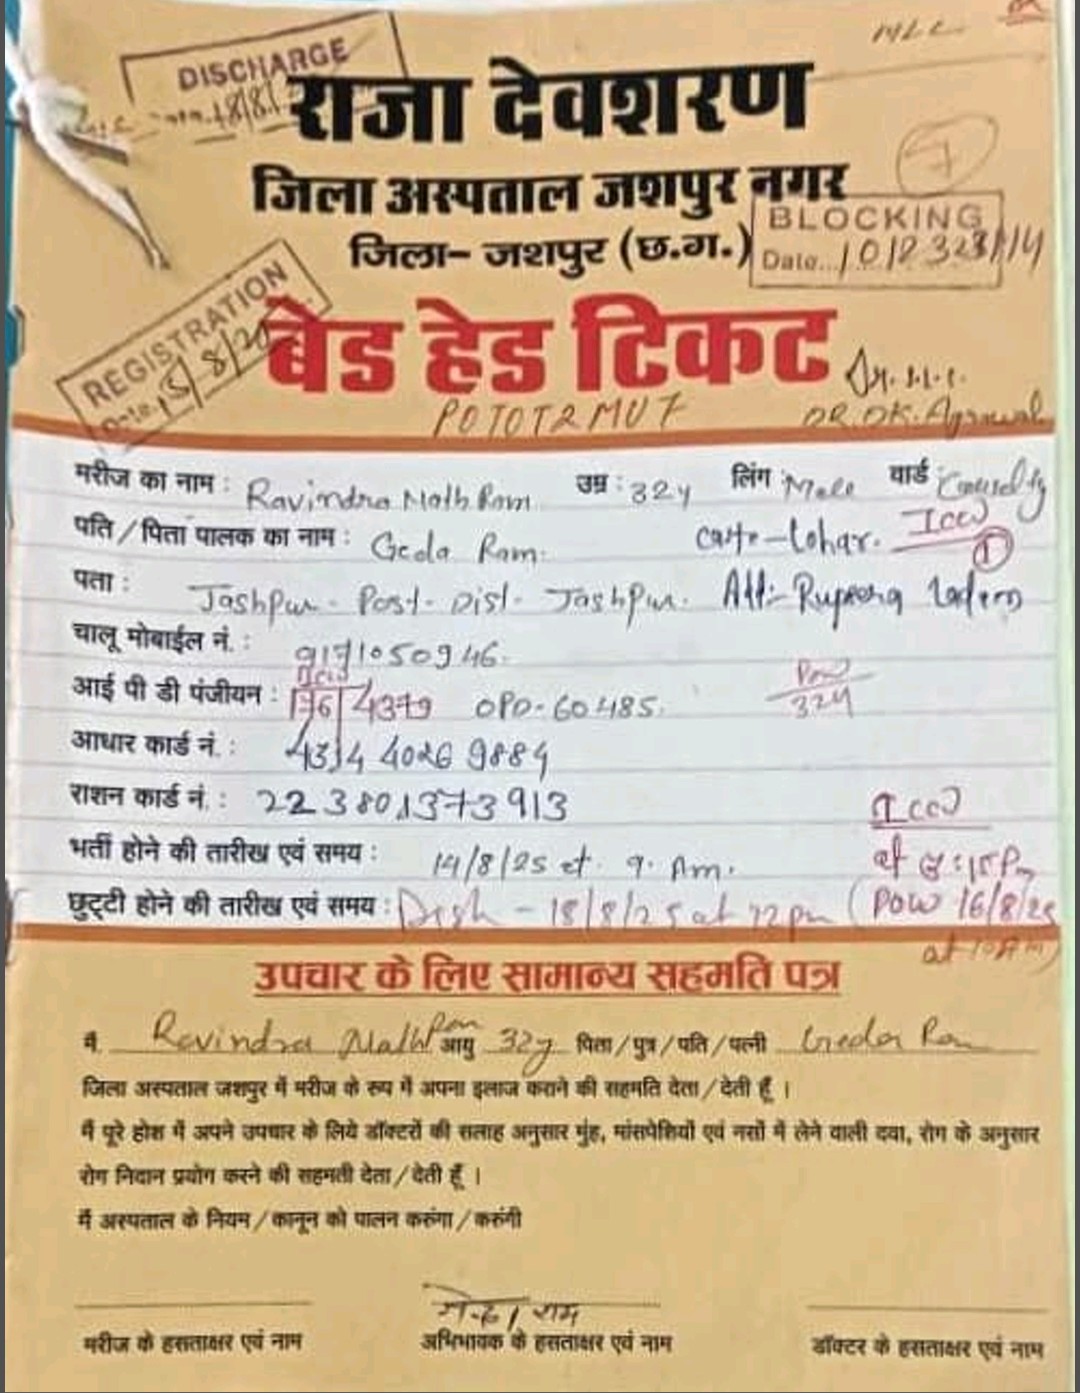 MLC
DISCHARGE
राजा देवशरण
जिला अस्पताल जशपुर नगर
7
जिला- जशपुर (छ.ग.)
BLOCKING
Date...
REGISTRATION
Date. 15/8/20
बेड हेड टिकट
POTOTRMUT
DR. DK. Agrawal
मरीज का नाम : Ravindra Nath Ram उम्र : 32y लिंग : Male वार्ड :
पति / पिता पालक का नाम : Geda Ram. caste - Lohar. ICCU
1
पता : Jashpur - Post - Dist - Jashpur. Att:-
चालू मोबाईल नं. : 9171050946.
आई पी डी पंजीयन : 176/4379 OPD-60485. POW 324
आधार कार्ड नं. : 4314 4026 9884
राशन कार्ड नं. : 223801373913
ICCU
भर्ती होने की तारीख एवं समय : 14/8/25 at 9. Am. at
छुट्टी होने की तारीख एवं समय : Disch - 18/8/25 at 12 pm (POW 16/8/25
at 10 AM)
उपचार के लिए सामान्य सहमति पत्र
मैं Ravindra Nath Ram आयु 32y पिता / पुत्र / पति / पत्नी Geda Ram
जिला अस्पताल जशपुर में मरीज के रुप में अपना इलाज कराने की सहमति देता / देती हूँ ।
मैं पूरे होश में अपने उपचार के लिये डॉक्टरों की सलाह अनुसार मुंह, मांसपेशियों एवं नसों में लेने वाली दवा, रोग के अनुसार
रोग निदान प्रयोग करने की सहमती देता / देती हूँ ।
मैं अस्पताल के नियम / कानून को पालन करुंगा / करुंगी
राम
मरीज के हसताक्षर एवं नाम अभिभावक के हसताक्षर एवं नाम डॉक्टर के हसताक्षर एवं नाम